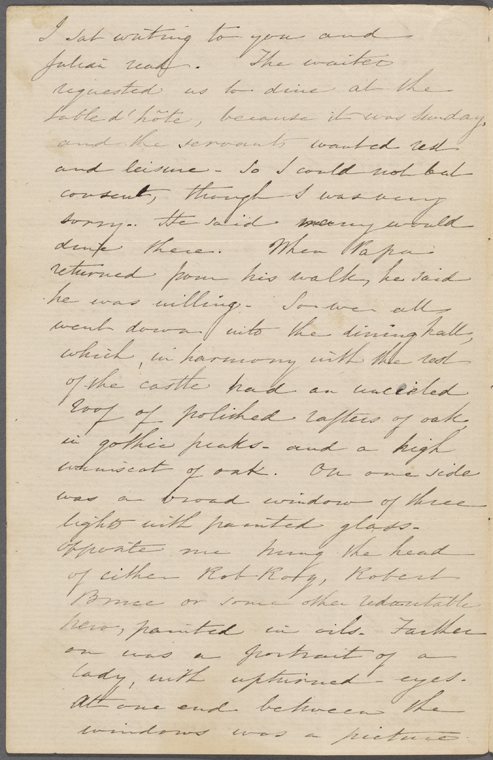 I sat writing to you and
Julian read. The waiter
requested us to dine at the
table d'hôte, because it was Sunday,
and the servants wanted rest
and leisure - So I could not but
consent, though I was very
sorry. He said many would
dine there. When Papa
returned from his walk, he said
he was willing. So we all
went down into the dining hall,
which, in harmony with the rest
of the castle had an unceiled
roof of polished rafters of oak,
in gothic peaks - and a high
wainscot of oak. On one side
was a broad window of three
lights with painted glass -
Opposite me hung the head
of either Rob Roy, Robert
Bruce or some other redoubtable
hero, painted in oils. Farther
on was a portrait of a
lady, with upturned - eyes -
At one end between the
windows was a picture